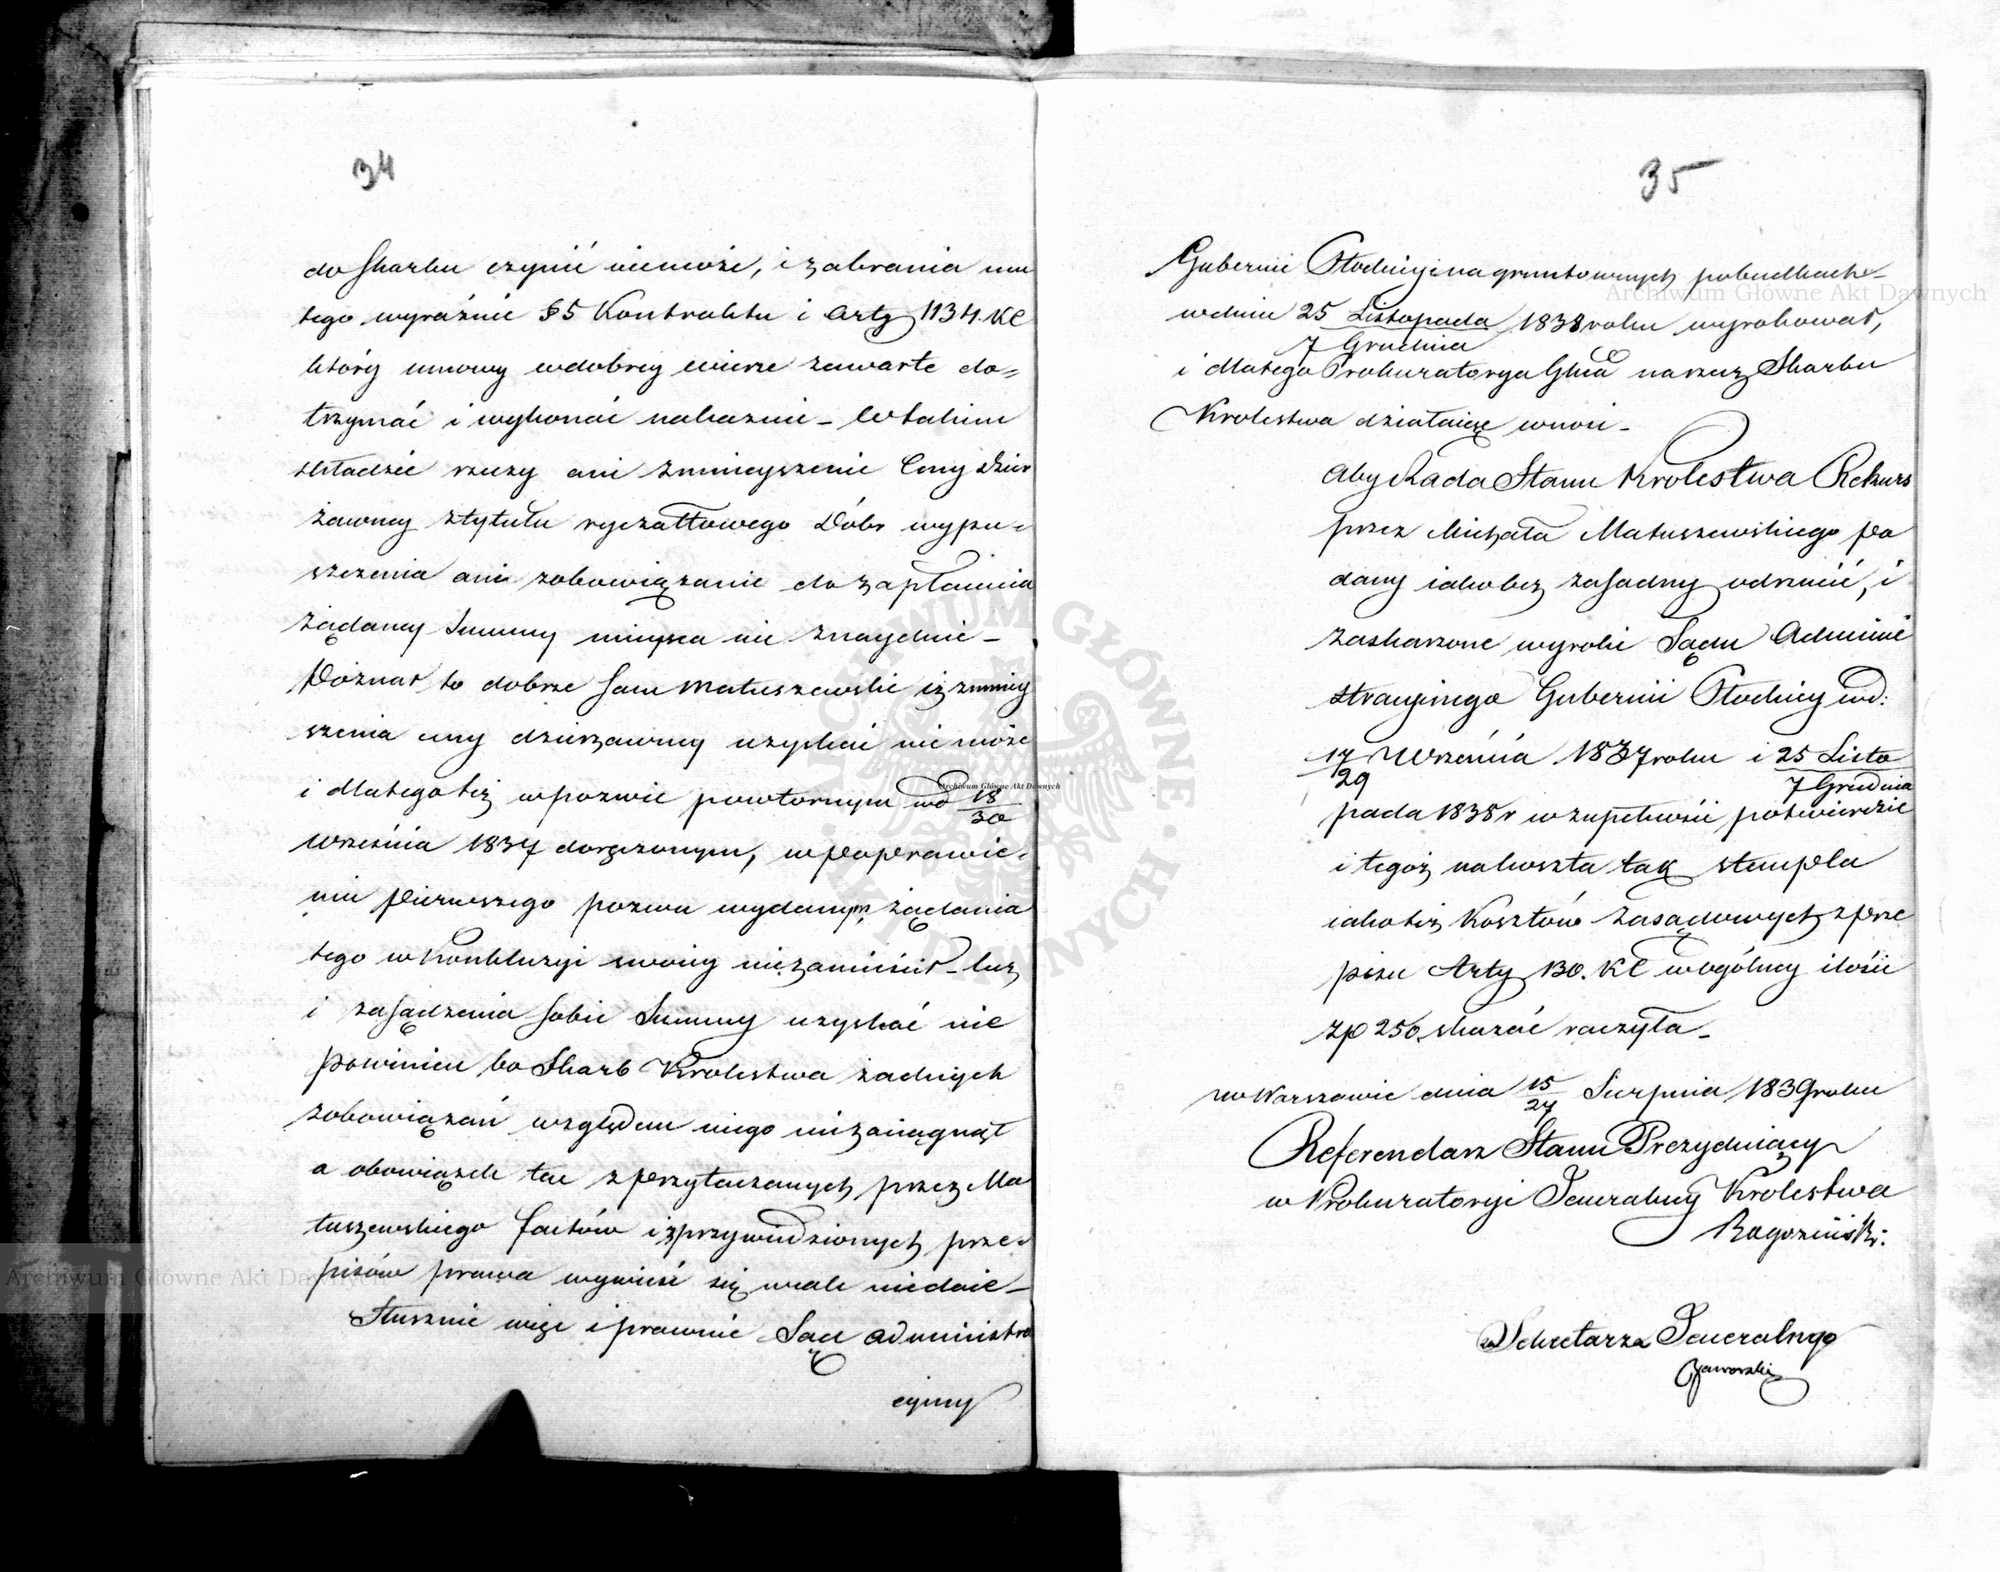 34
do Skarbu czynić niemoże, i zabrania mu
tego wyraźnie §5 Kontraktu i Arty 1134. KC
który umowy wdobrey wierze zawarte do=
trzymać i wykonać nakaznie _ W takim
składzie rzeczy ani zmnieyszenie Ceny dzier
żawney ztytułu ryczałtowego Dóbr wypu=
szczenia ani zobowiązanie do zapłacenia
żądaney Summy mieysca nie znaydnie _
Poznał to dobrze sam Matuszewski iż zmniey
szenia ceny dzierżawney uzyskać nie może
i dlategoteż wpozwie powtórnym wd 18/30
Września 1837 doręczonym, wpoprawie=
niu pierwszego pozwu wydanym, żądania
tego w konkluzyi swoiey niezamieścił _ lecz
i zasądzenia sobie Summy uzyskać nie
powinien bo Skarb Królestwa żadnych
zobowiązań względem niego niezaciągnął
a obowiązek ten z przytaczanych przez Ma
tuszewskiego factów i z przywiedzionych prze=
pisów prawa wywieść się wcale niedaie _
Słusznie więc i prawnie Sąd Administra
cyiny
35
Gubernii Płockiey i na gruntownych pobudkach
wdniu 25 Listopada / 7 Grudnia 1838 roku wyrokował,
i dlatego Prokuratorya Glna narzecz Skarbu
Królestwa działaiąc wnosi _
Aby Rada Stanu Królestwa Rekurs
przez Michała Matuszewskiego po
dany iako bez zasadny odrzucić, i
zaskarzone wyroki Sądu Admini
stracyinego Gubernii Płockiey wd:
17/29 Września 1837 roku i 25 Listo
7 Grudnia
pada 1838 r w zupełności potwierdzić
i tegoż nakoszta tak stempla
iakoteż Kosztów Zasądowych z prze
pisu Arty 130. KC w ogólney ilości
zp 250. skazać raczyła _
w Warszawie dnia 15/27 Sierpnia 1839 roku
Referendarz Stanu Prezyduiący
w Prokuratoryi Jeneralney Królestwa
Rogoziński.
za Sekretarza Jeneralnego
Jaworski
Archiwum Główne Akt Dawnych
Archiwum Główne Akt Dawnych
Archiwum Główne Akt Dawnych
ARCHIWUM GŁÓWNE AKT DAWNYCH